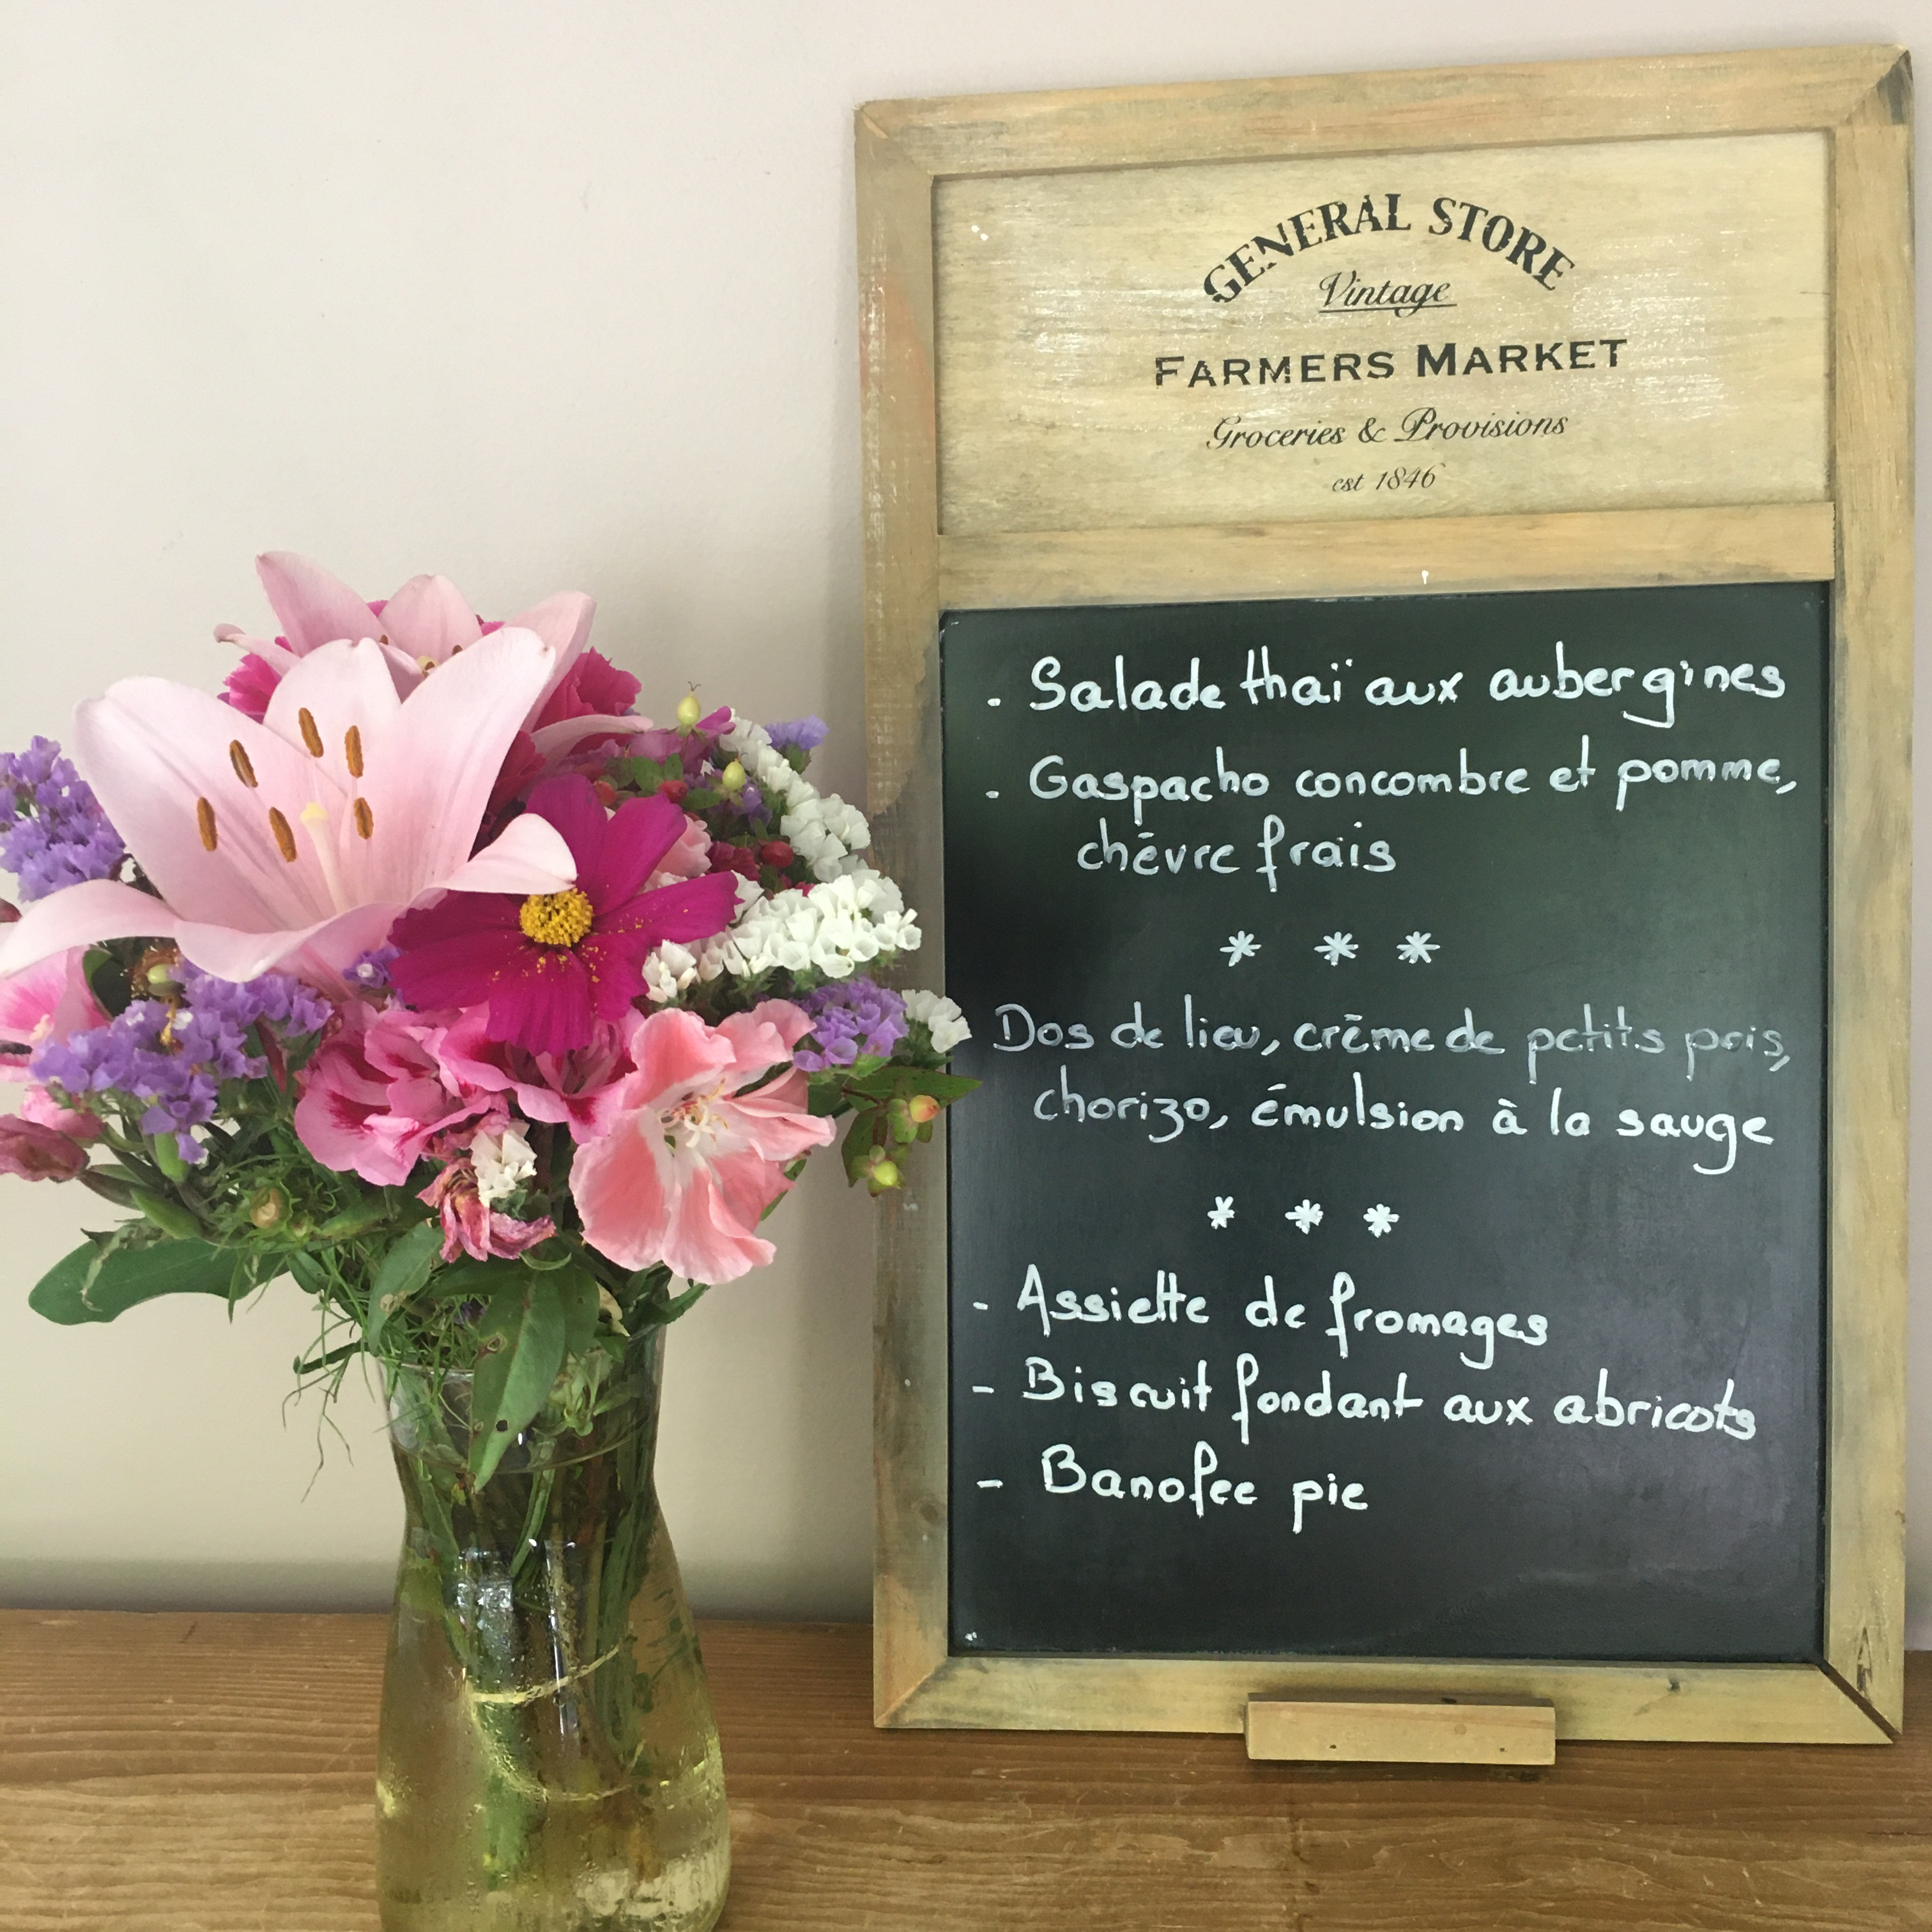 GENERAL STORE
Vintage
FARMERS MARKET
Groceries & Provisions
est 1846
. Salade thaï aux aubergines
. Gaspacho concombre et pomme,
chèvre frais
* * *
Dos de lieu, crème de petits pois,
chorizo, émulsion à la sauge
* * *
- Assiette de fromages
- Biscuit fondant aux abricots
- Banofee pie